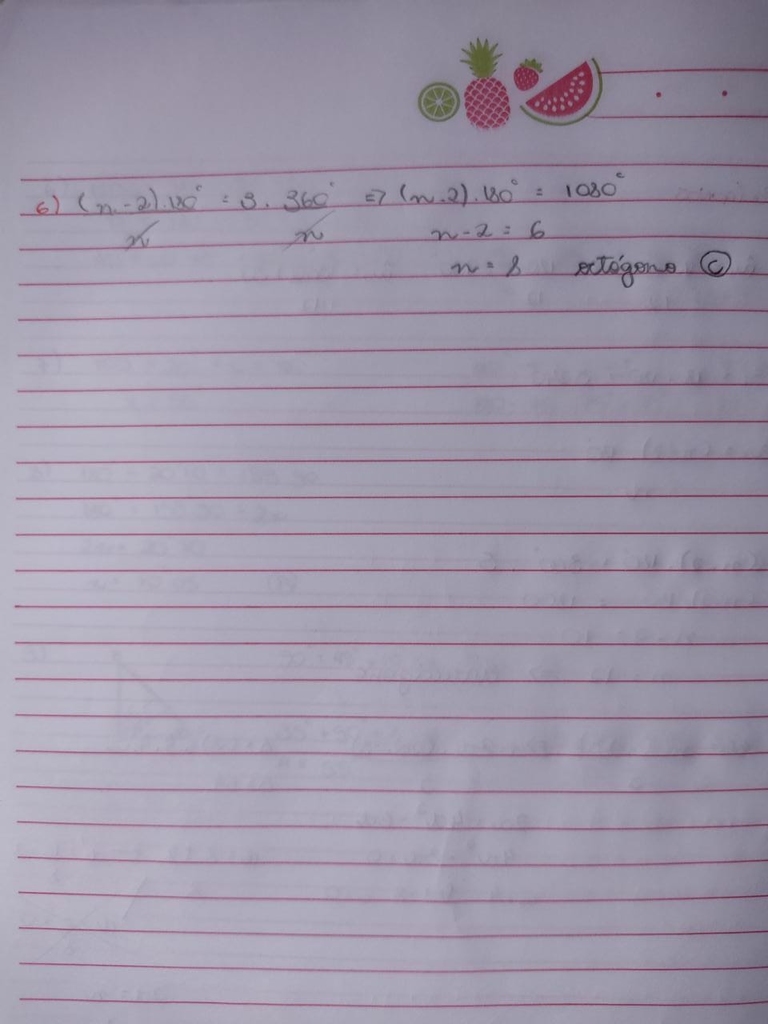 6) (n-2).180° = 3. 360° => (n-2).180° = 1080°
n n n-2 = 6
n = 8 octógono (C)